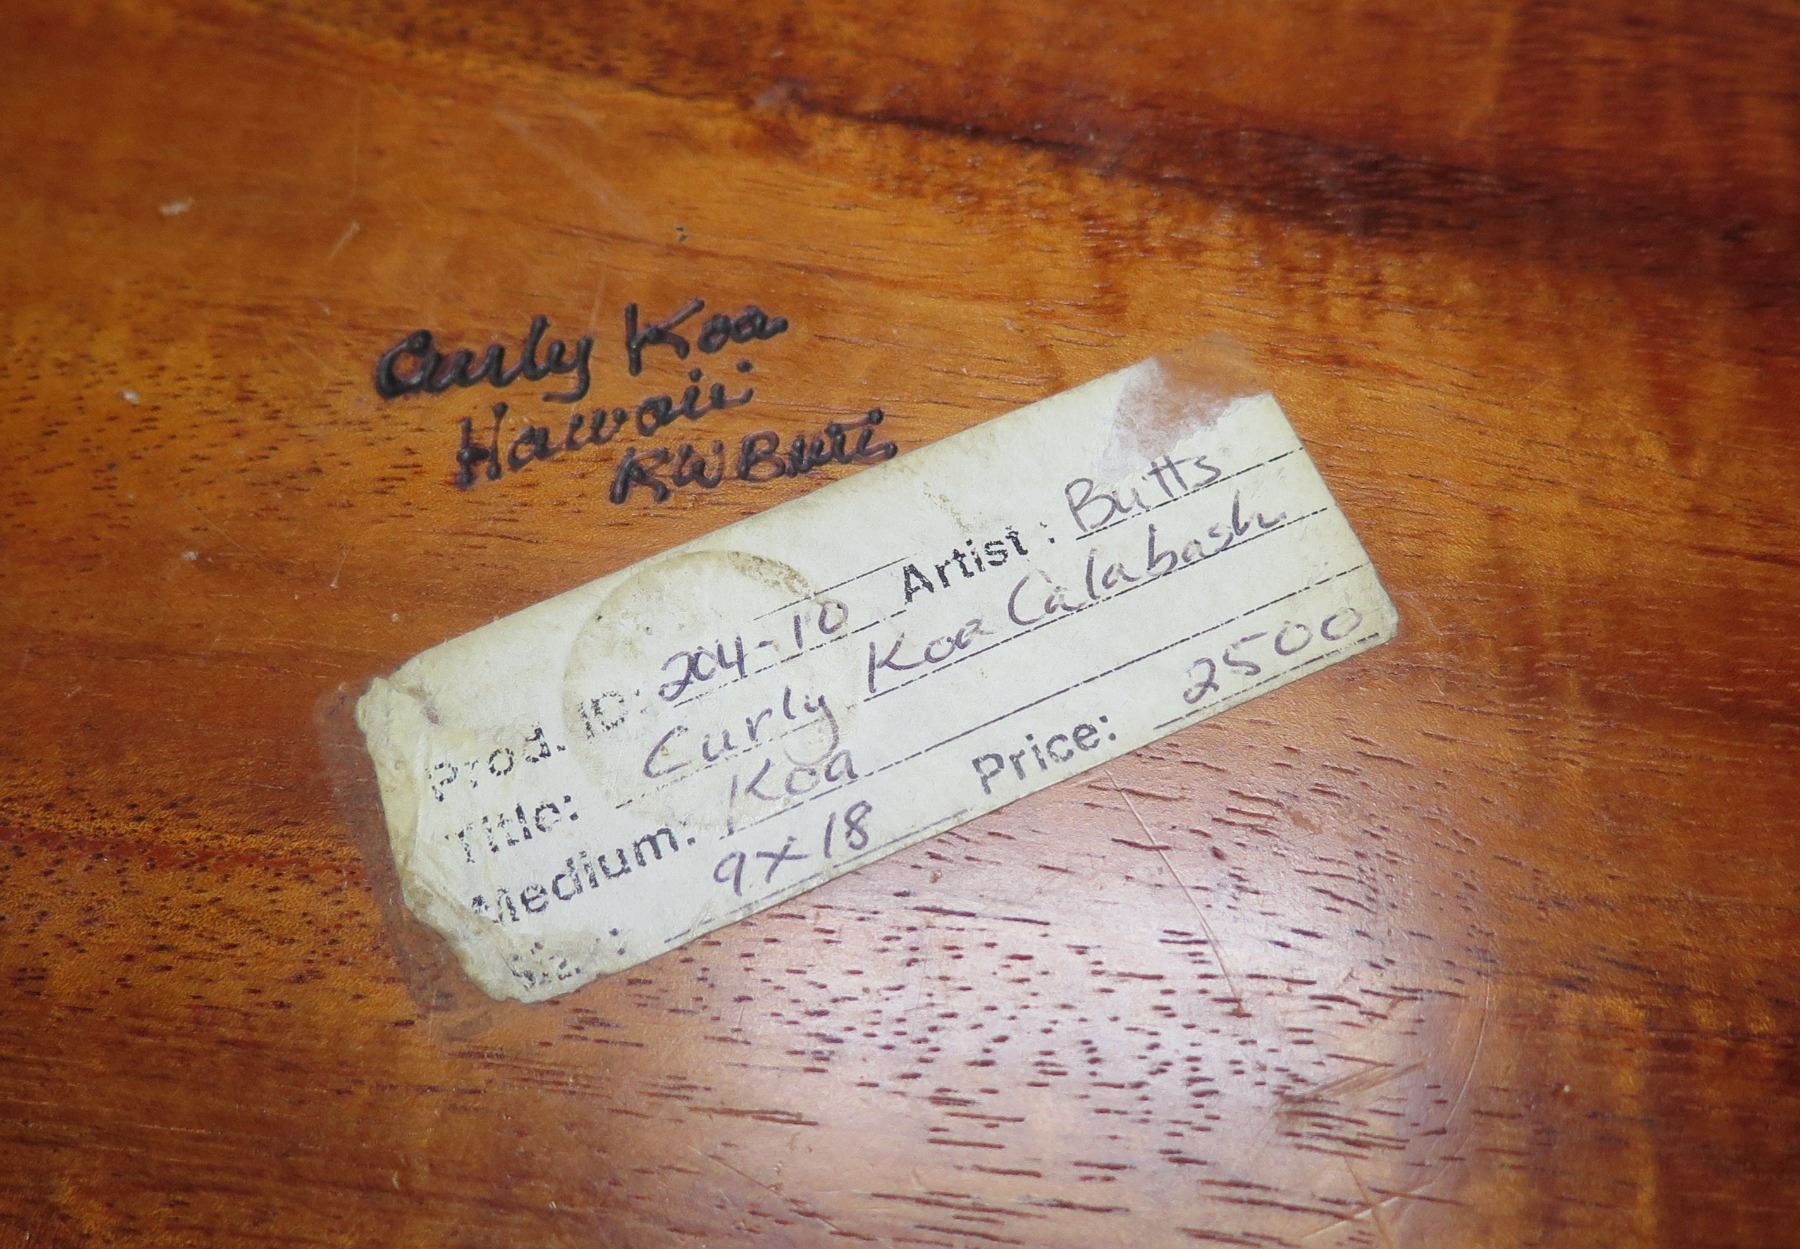 Curly Koa
Hawaii
RW Butts
Prod. ID: 204-10 Artist: Butts
Title: Curly Koa Calabash
Medium: Koa
9x18 Price: 2500